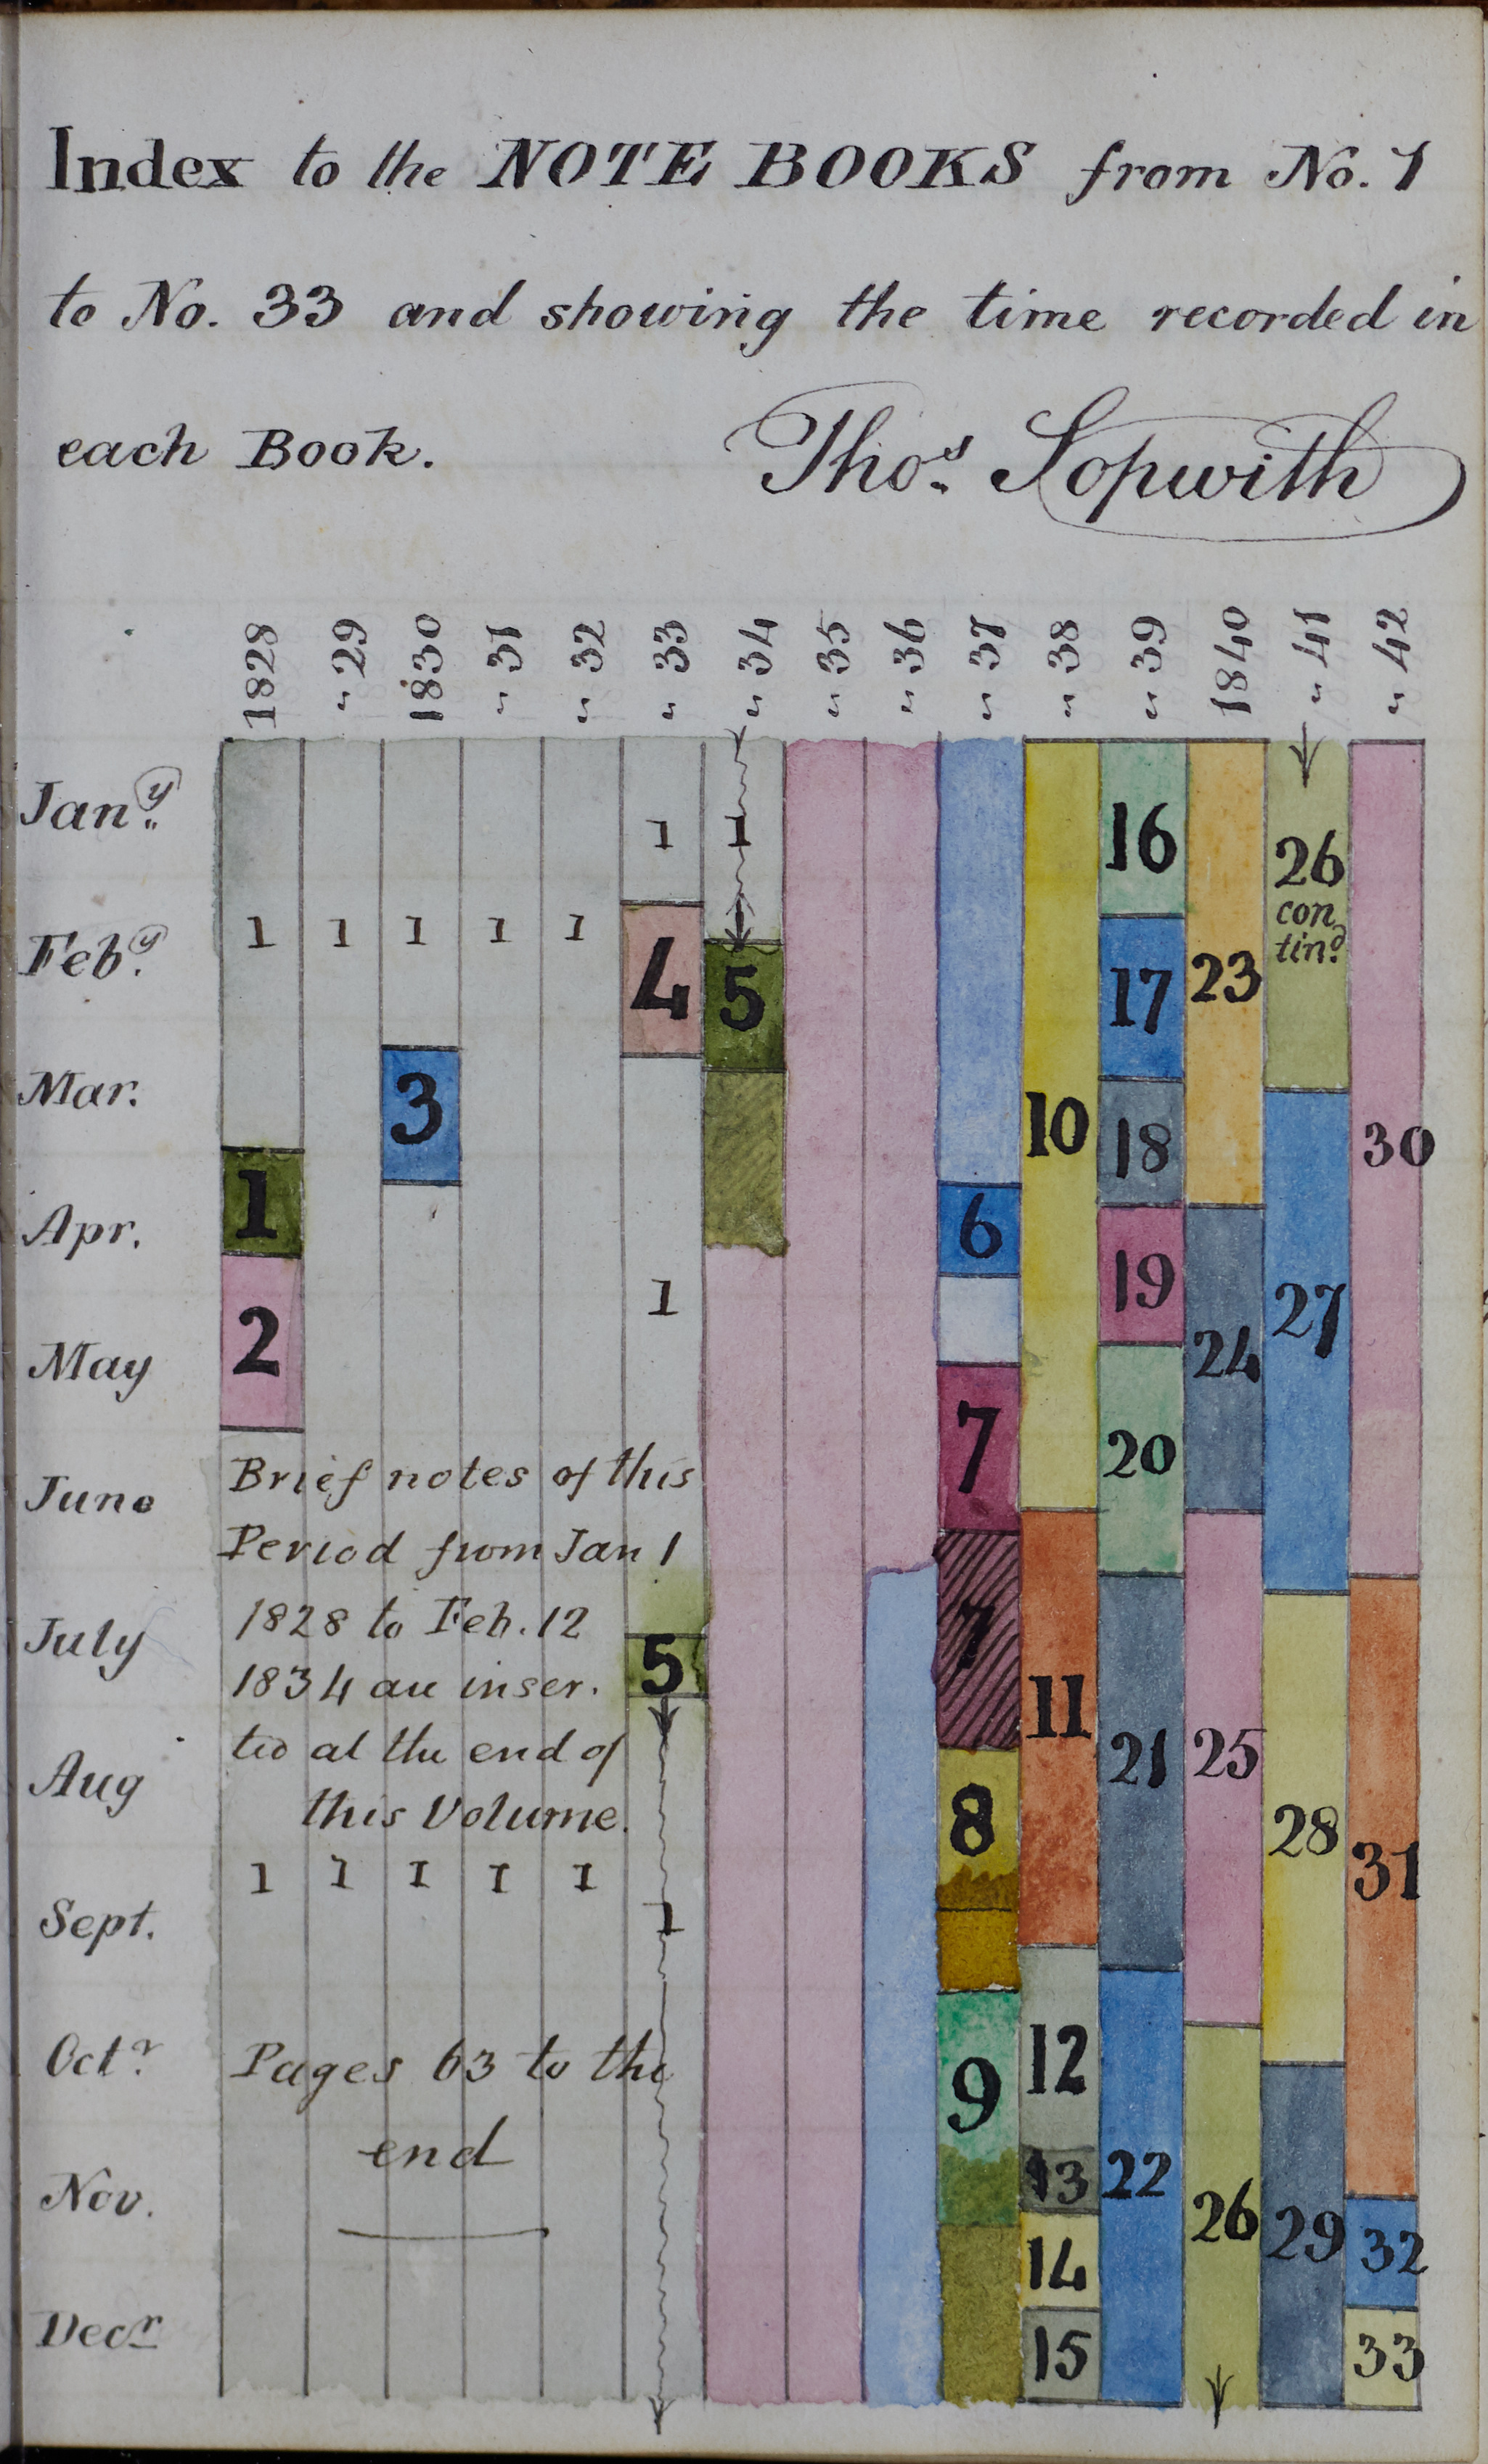 Index to the NOTE BOOKS from No. 1
to No. 33 and showing the time recorded in
each Book. Thos. Sopwith
1828 " 29 1830 " 31 " 32 " 33 " 34 " 35 " 36 " 37 " 38 " 39 1840 " 41 " 42
Jany.
1 1 16 26
con
tind.
Feby.
1 1 1 1 1 4 5 17 23
Mar.
3 10 18 30
Apr.
1 6 19 27
1
May
2 7 20 24
June
Brief notes of this
Period from Jan 1
1828 to Feb. 12
July
5 7 11
1834 are inser.
ted at the end of
21 25
Aug
this Volume.
8 28 31
1 1 1 1 1
Sept.
1
Octr.
Pages 63 to the
9 12
end
Nov.
13 22 26 29 32
14
Decr
15 33